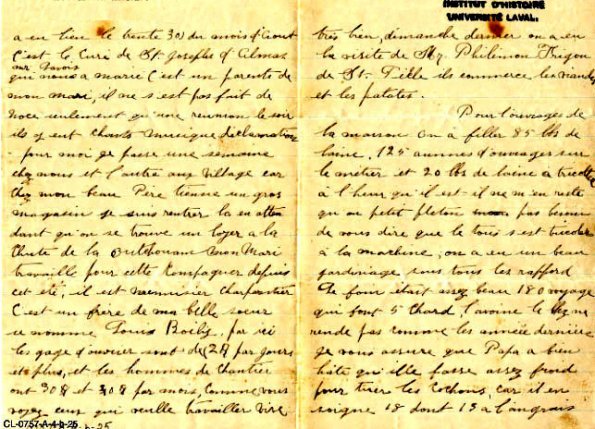 INSTITUT D'HISTOIRE
UNIVERSITÉ LAVAL.
a eu lieu le trente 30 du mois d'Aout
C'est le Curé de St Josephe d'Almas
mr Lavois
qui nous a marié C'est un parents de
mon mari, il ne s'est pas fait de
noce seulement qu'une reunion le soir
ils y ent chants musique déclamation
pour moi je passe une semaine
chez nous et l'autre aux village car
chez mon beau Père tienne un gros
magasin je suis rentrer la en atten
dant qu'on se trouve un loyer a la
Chute de la mon Mari
travaille pour cette Compagner depuis
cet été, il est menuisier charpentier
C'est un frère de ma belle soeur
se nomme Louis Boily, par ici
les gage d'ouvrier sont de 2$ par jours
et plus, et les hommes de chantier
ont 30$ et par mois, Comme vous
voyez ceux qui veulle travailler vive
très bien, dimanche dernier on a eu
la visite de Mr Philimon
de St- ils commerce les viandes
et les patates.
Pour l'ouvrages de
la maison on à filler 85 lbs de
laine, 125 d'ouvrages sur
le métier et 20 lbs de laine a tricotter
à l'heur qu'il est il ne m'en reste
qu'on petit pas besoin
de vous dire que le tous s'est tricoter
à la machine, on a eu un beau
jardinage sous tous les rafford
Le foin était assez beau 180 voyage
qui font 5 Chard, l'avoine le
rende pas comme les année dernière
Je vous assure que Papa a bien
hâte qu'elle fasse assez froid
pour tuer les Cochons, car il en
soigne 18 dont 13 a l'angrais
CL-0757-A-4-b-25